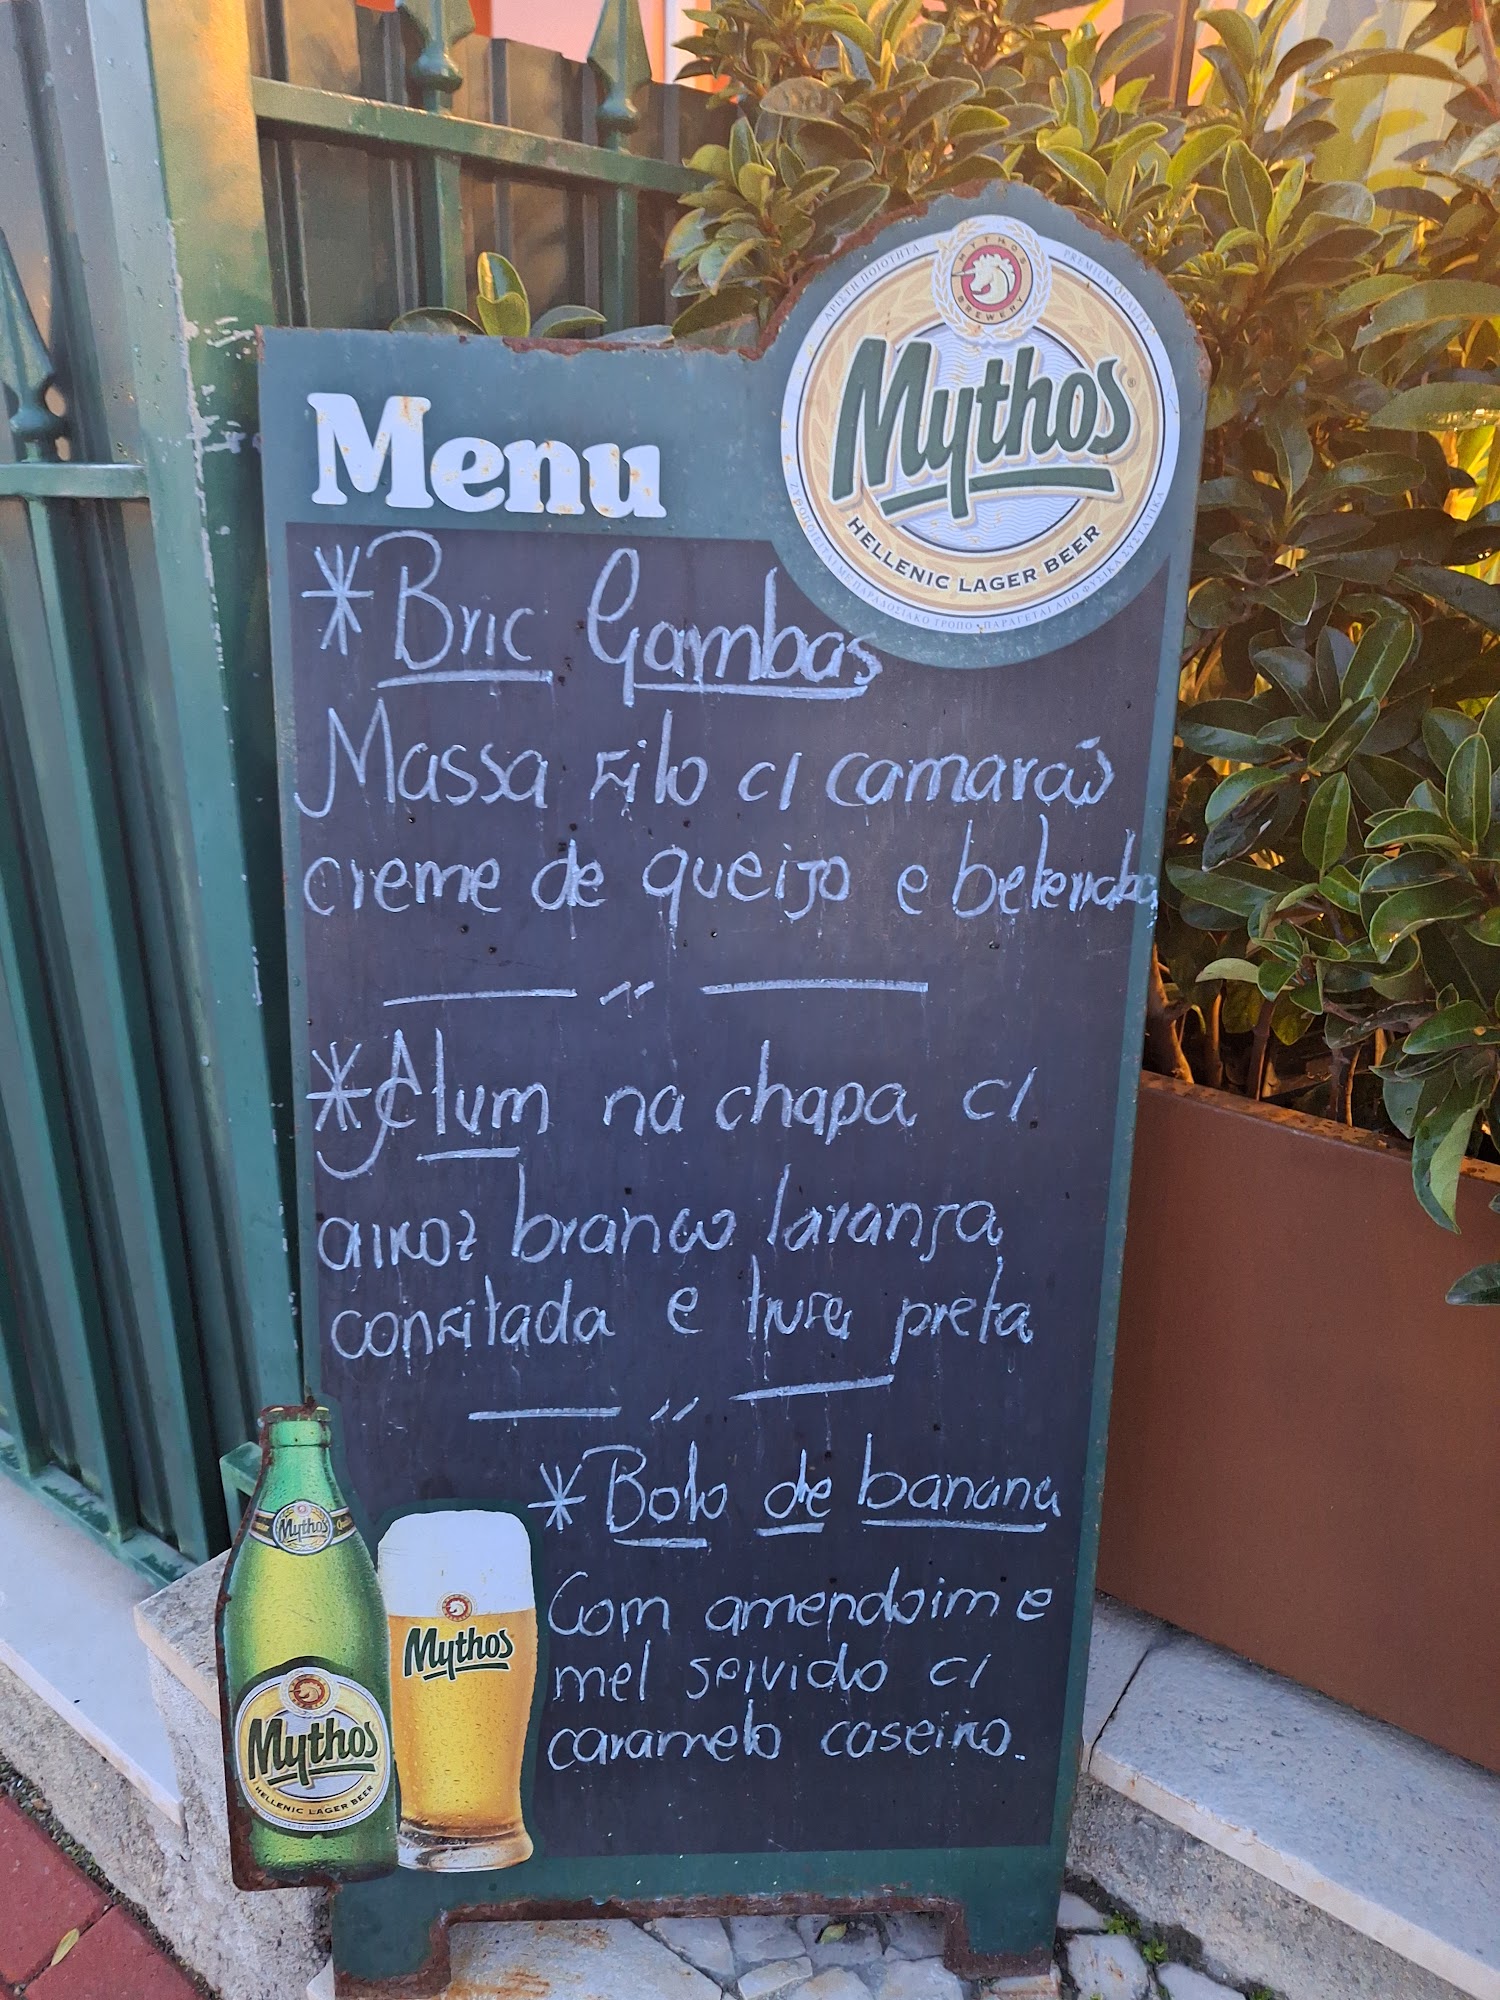 Menu
MYTHOS
BREWERY
ΑΡΙΣΤΗ ΠΟΙΟΤΗΤΑ
PREMIUM QUALITY
Mythos
HELLENIC LAGER BEER
ΖΥΘΟΠΟΙΕΙΤΑΙ ΜΕ ΠΑΡΑΔΟΣΙΑΚΟ ΤΡΟΠΟ • ΠΑΡΑΓΕΤΑΙ ΑΠΟ ΦΥΣΙΚΑ ΣΥΣΤΑΤΙΚΑ
*Bric Gambas
Massa Filo c/ camarão
creme de queijo e beterraba
*Atum na chapa c/
arroz branco laranja
confitada e trufa preta
*Bolo de banana
Com amendoim e
mel servido c/
caramelo caseiro.
Mythos
Mythos
HELLENIC LAGER BEER
Mythos